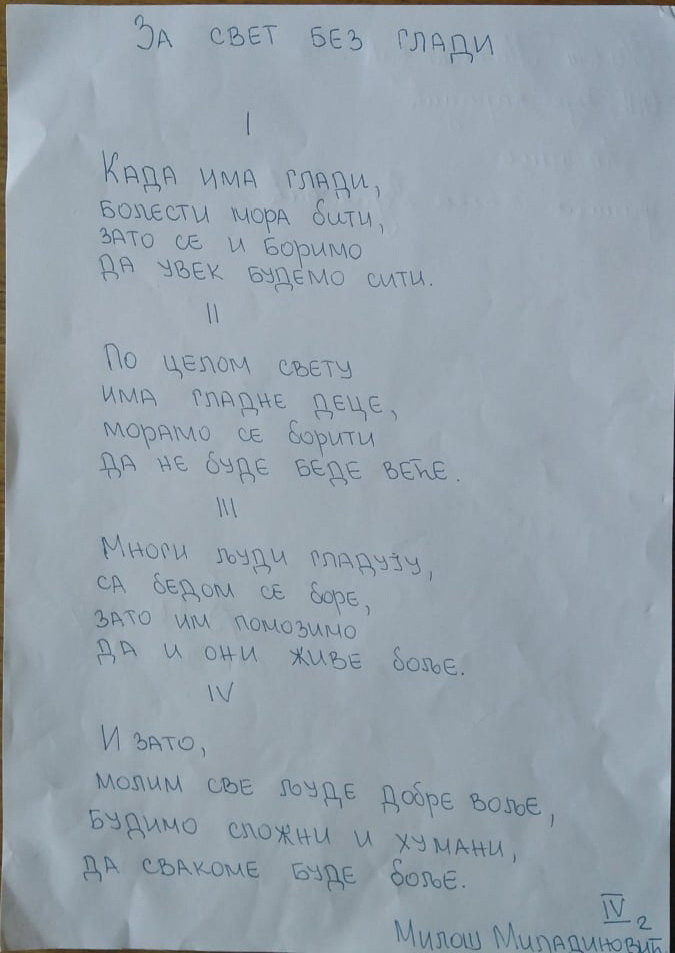 За свет без глади
I
Када има глади,
болести мора бити,
зато се и боримо
да увек будемо сити.
II
По целом свету
има гладне деце,
морамо се борити
да не буде беде веће.
III
Многи људи гладују,
са бедом се боре,
зато им помозимо
да и они живе боље.
IV
И зато,
молим све људе добре воље,
будимо сложни и хумани,
да свакоме буде боље.
IV 2
Милош Миладиновић